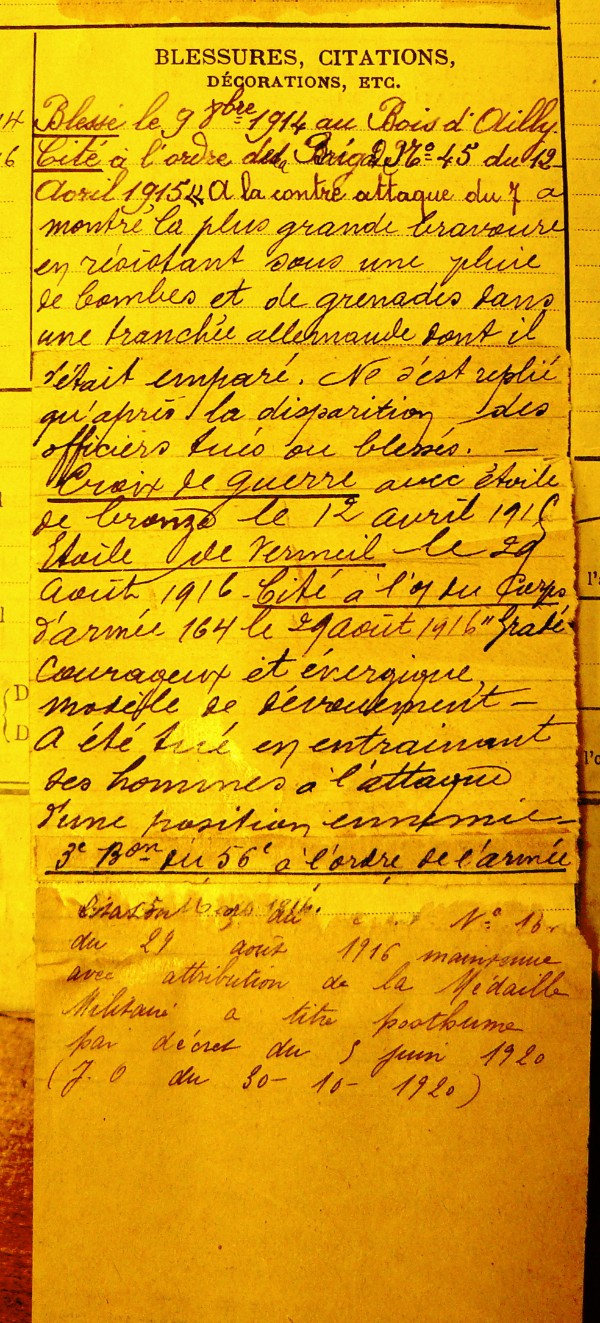 BLESSURES, CITATIONS,
DÉCORATIONS, ETC.
Blessé le 9 8bre 1914 au Bois d'Ailly.
Cité à l'ordre de la Brigde No 45 du 12
Avril 1915 « A la contre attaque du 7 a
montré la plus grande bravoure
en résistant sous une pluie
de bombes et de grenades dans
une tranchée allemande dont il
s'était emparé. Ne s'est replié
qu'après la disparition des
officiers tués ou blessés. —
Croix de guerre avec étoile
de bronze le 12 avril 1915
Etoile de Vermeil le 29
Août 1916 - Cité à l'o/ du Corps
d'armée 164 le 29 août 1916 " Gradé
courageux et énergique,
modèle de dévouement —
A été tué en entrainant
ses hommes à l'attaque
d'une position ennemie —
3e Bon du 56e à l'ordre de l'armée
Mars 1916.
Citation du No
du 29 août 1916 maintenue
avec attribution de la Médaille
Militaire a titre posthume
par décret du 5 juin 1920
(J. O du 30 - 10 - 1920)